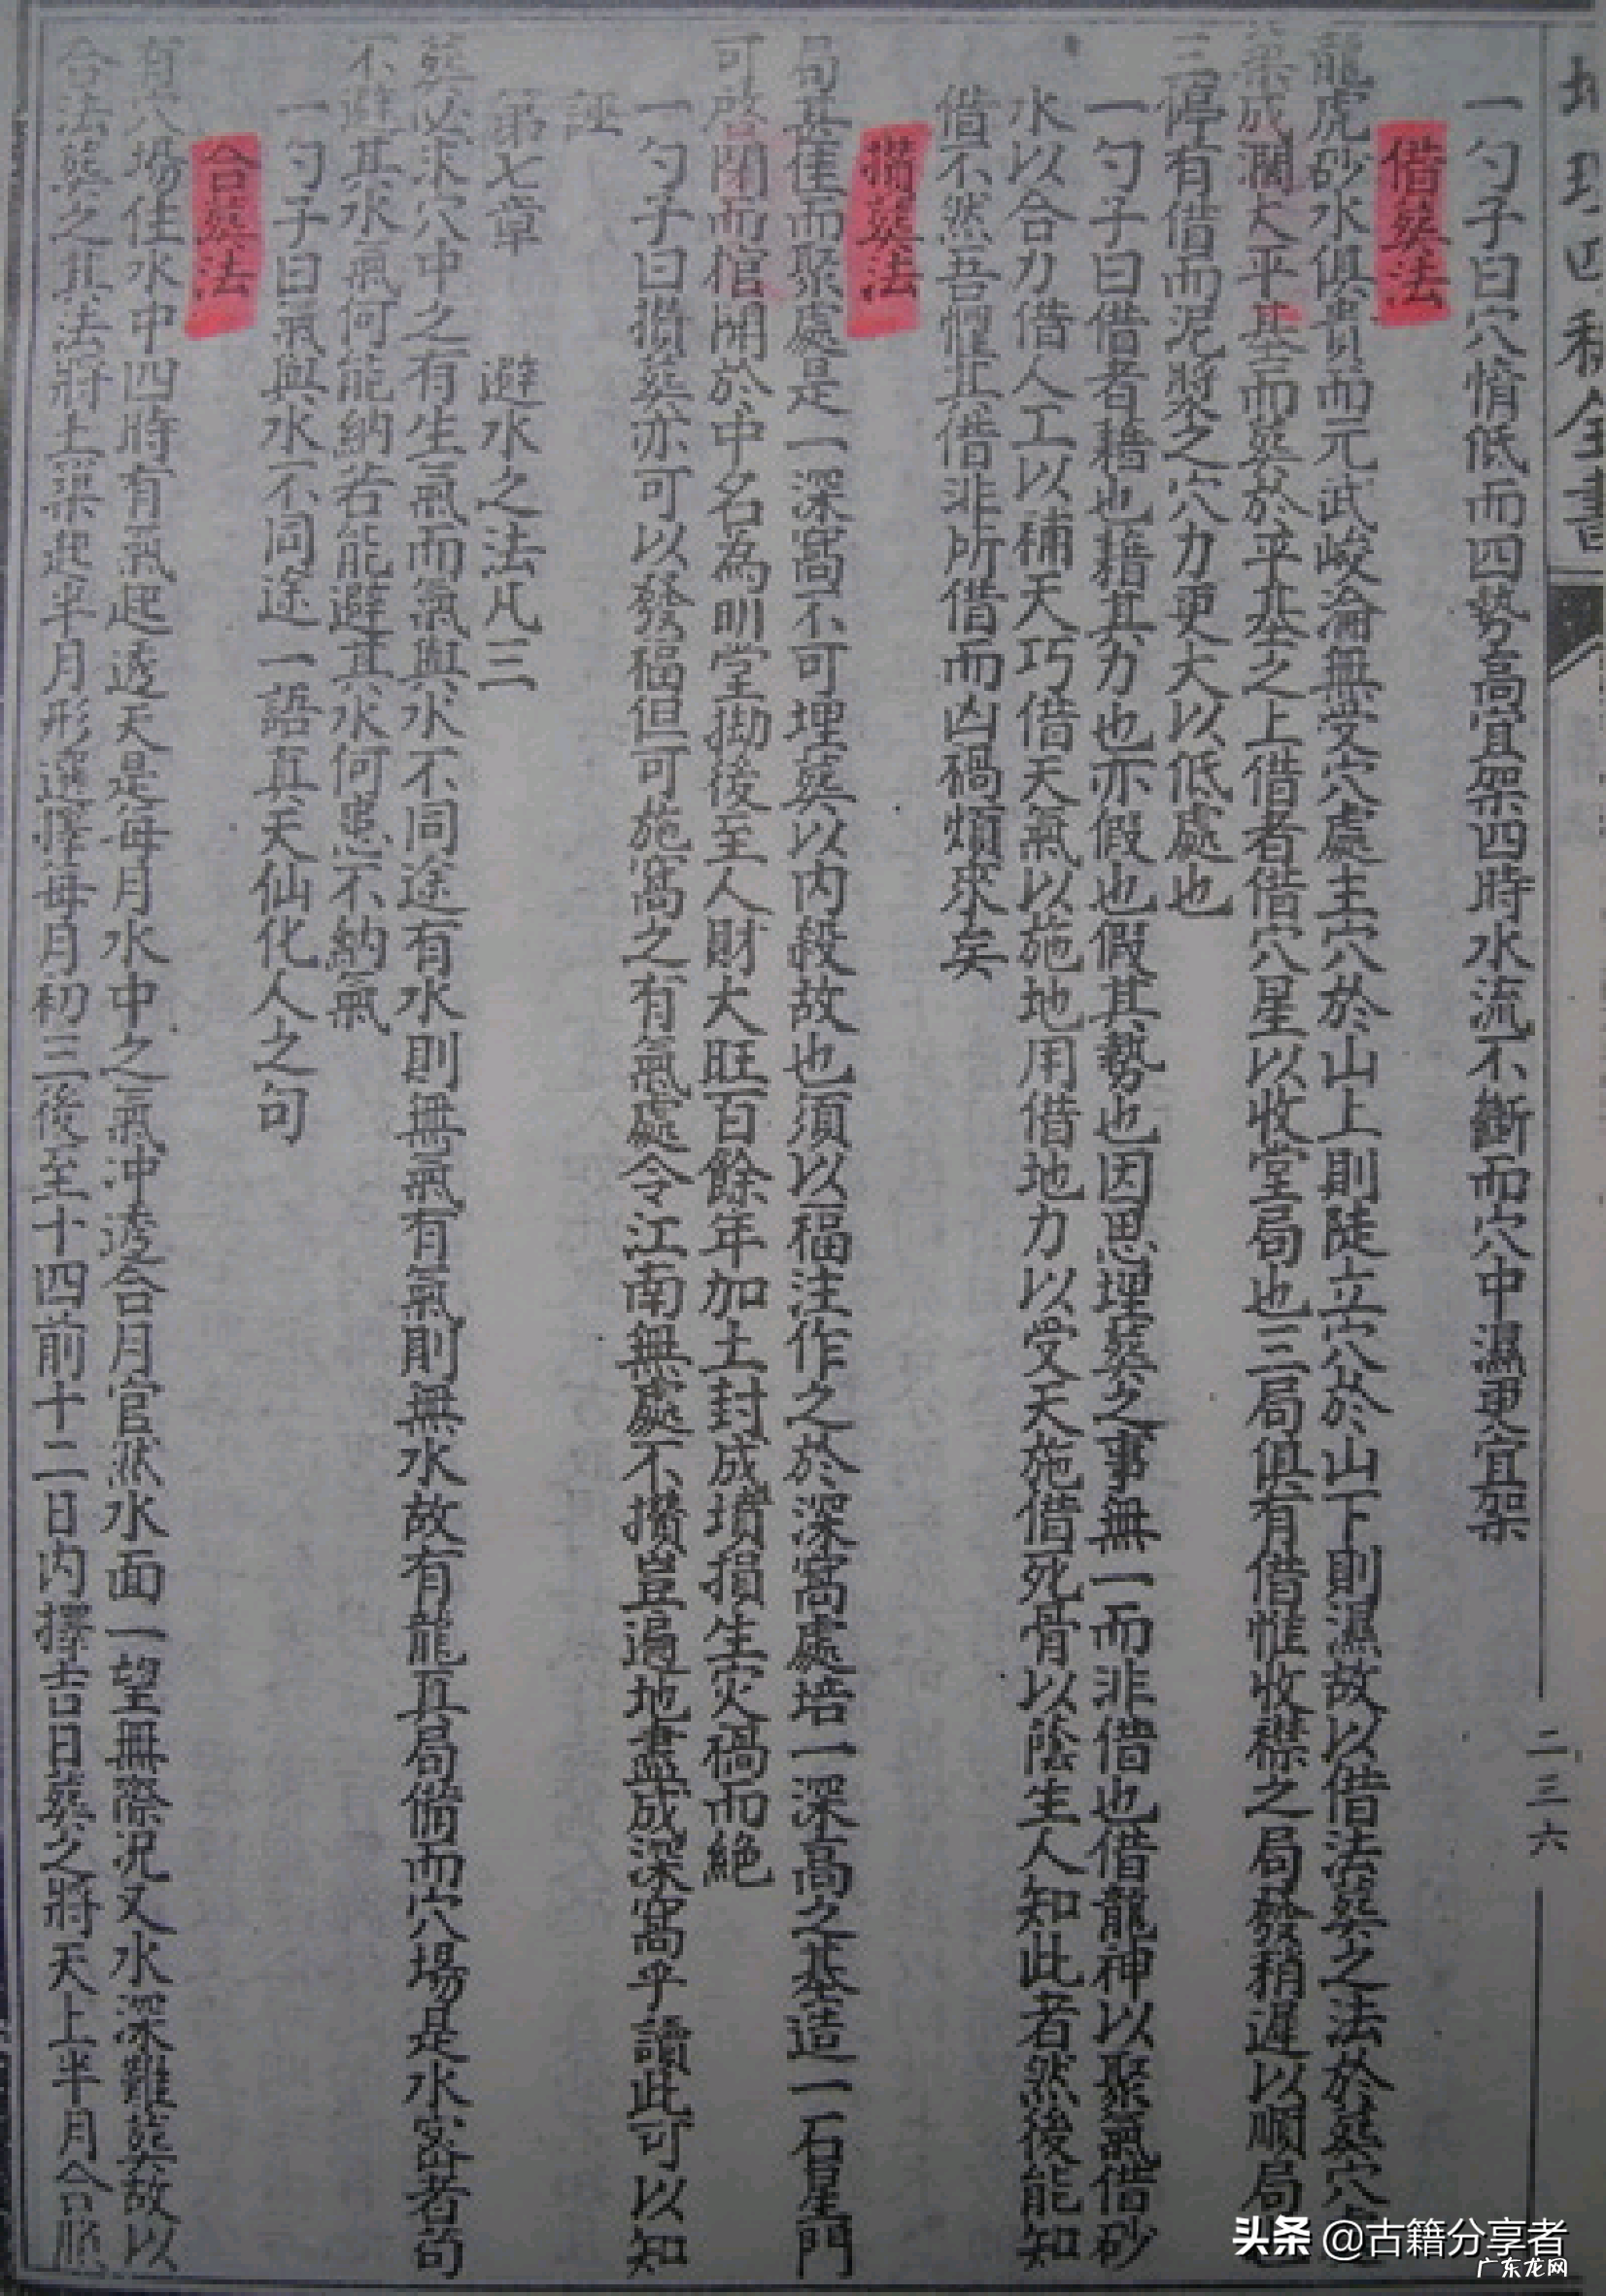 地理四秘全書
二三六
一勺子曰穴情低而四勢高宜架四時水流不斷而穴中濕更宜架
借葬法
龍虎砂水俱貴而元武峻淪無受穴處主穴於山上則陡立穴於山下則濕故以借法葬之法於葬穴
築成濶大平基而葬於平基之上借者借穴星以收堂局也三局俱有借惟收襟之局發稍遲以順局
三停有借而泥漿之穴力更大以低處也
一勺子曰借者藉也藉其力也亦假也假其勢也因思埋葬之事無一而非借也借龍神以聚氣借砂
水以合力借人工以補天巧借天氣以施地用借地力以受天施借死骨以蔭生人知此者然後能知
借不然吾懼其借非所借而凶禍煩來矣
攢葬法
局甚佳而聚處是一深窩不可埋葬以內殺故也須以福注作之於深窩處培一深高之基造一石星門
可啓閉而棺閣於中名為明堂拗後至人財大旺百餘年加土封成墳損生灾禍而絕
一勺子曰攢葬亦可以發福但可施窩之有氣處令江南無處不攢豈遍地盡成深窩乎讀此可以知
誣
第七章　避水之法凡三
葬必求穴中之有生氣而氣與水不同途有水則無氣有氣則無水故有龍真局備而穴場是水窩者苟
不避其水氣何能納若能避其水何患不納氣
一勺子曰氣與水不同途一語真天仙化人之句
合葬法
有穴場佳水中四時有氣起透天是每月水中之氣沖透合月官然水面一望無際況又水深難葬故以
合法葬之其法將土築起半月形選擇每月初三後至十四前十二日內擇吉日葬之將天上半月合照
头条 @古籍分享者
广东龙网